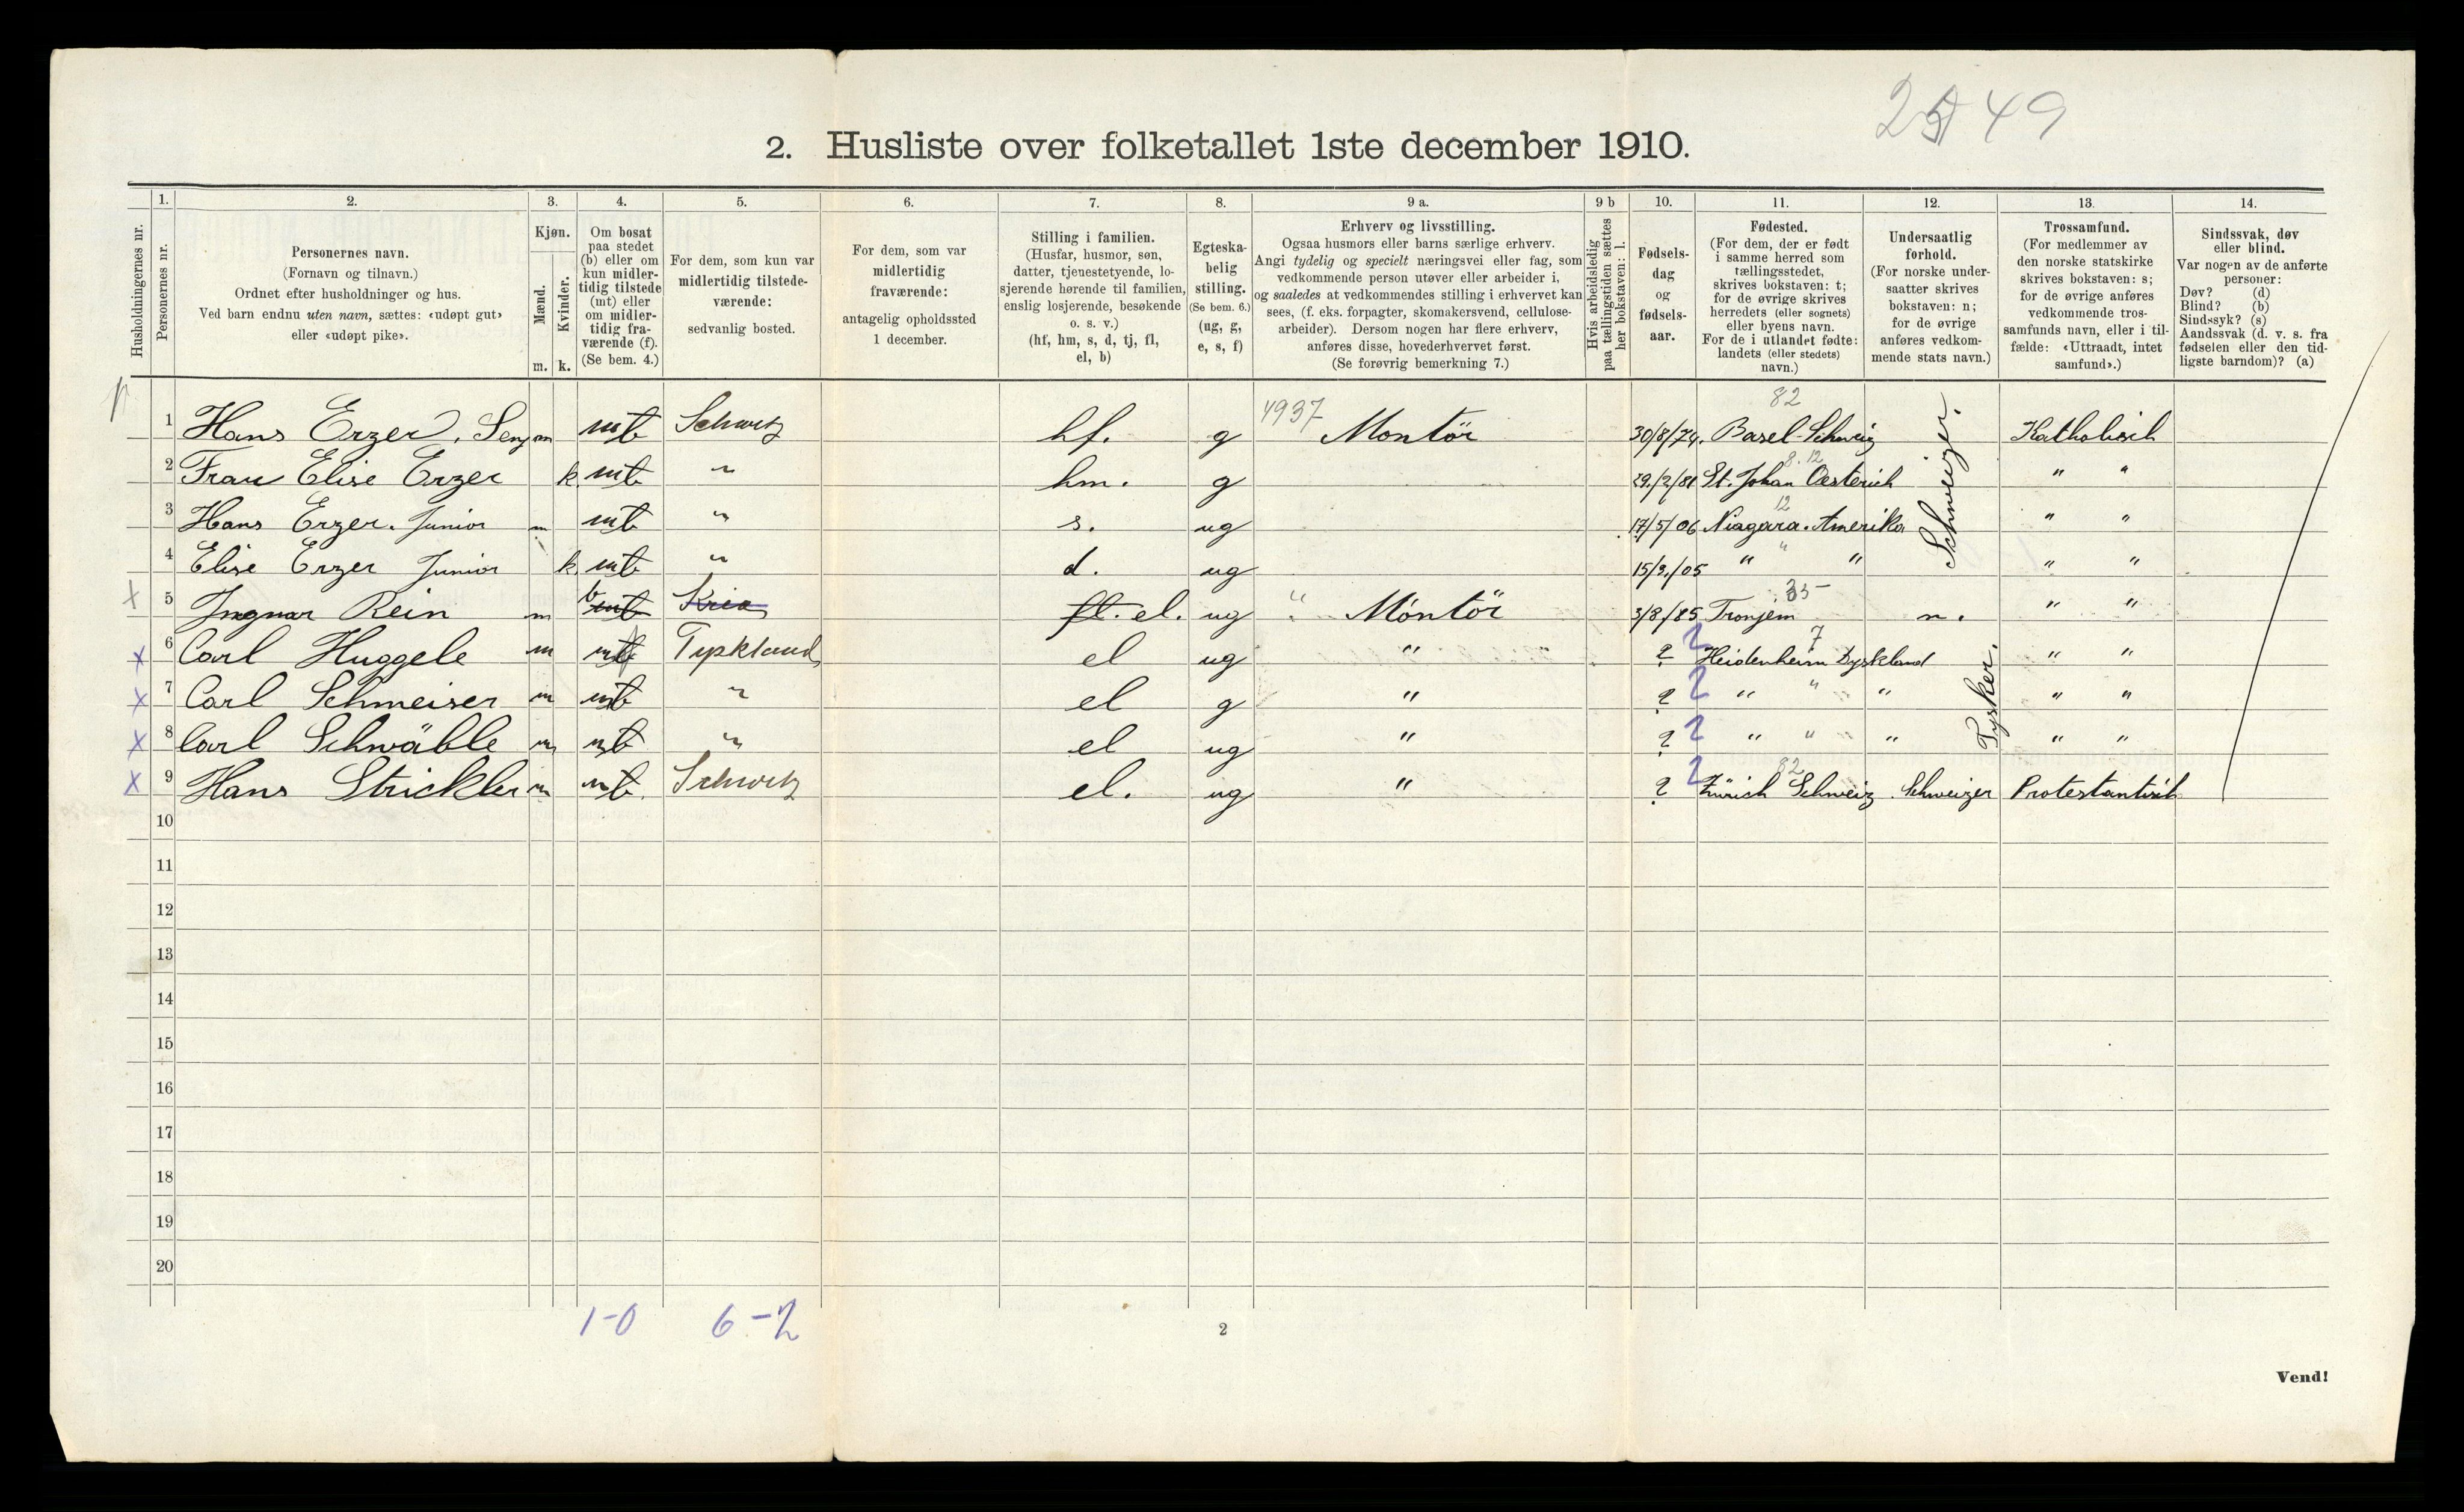 2549
2. Husliste over folketallet 1ste december 1910.
Husholdningernes nr.
1.
Personernes nr.
2.
Personernes navn.
(Fornavn og tilnavn.)
Ordnet efter husholdninger og hus.
Ved barn endnu uten navn, sættes: «udøpt gut»
eller «udøpt pike».
3.
Kjøn.
Mænd.
Kvinder.
m. k.
4.
Om bosat
paa stedet
(b) eller om
kun midler-
tidig tilstede
(mt) eller
om midler-
tidig fra-
værende (f).
(Se bem. 4.)
5.
For dem, som kun var
midlertidig tilstede-
værende:
sedvanlig bosted.
6.
For dem, som var
midlertidig
fraværende:
antagelig opholdssted
1 december.
7.
Stilling i familien.
(Husfar, husmor, søn,
datter, tjenestetyende, lo-
sjerende hørende til familien,
enslig losjerende, besøkende
o. s. v.)
(hf, hm, s, d, tj, fl,
el, b)
8.
Egteska-
belig
stilling.
(Se bem. 6.)
(ug, g,
e, s, f)
9 a.
Erhverv og livsstilling.
Ogsaa husmors eller barns særlige erhverv.
Angi tydelig og specielt næringsvei eller fag, som
vedkommende person utøver eller arbeider i,
og saaledes at vedkommendes stilling i erhvervet kan
sees, (f. eks. forpagter, skomakersvend, cellulose-
arbeider). Dersom nogen har flere erhverv,
anføres disse, hovederhvervet først.
(Se forøvrig bemerkning 7.)
9 b
Hvis arbeidsledig
paa tællingstiden sættes
her bokstaven: l.
10.
Fødsels-
dag
og
fødsels-
aar.
11.
Fødested.
(For dem, der er født
i samme herred som
tællingsstedet,
skrives bokstaven: t;
for de øvrige skrives
herredets (eller sognets)
eller byens navn.
For de i utlandet fødte:
landets (eller stedets)
navn.)
12.
Undersaatlig
forhold.
(For norske under-
saatter skrives
bokstaven: n;
for de øvrige
anføres vedkom-
mende stats navn.)
13.
Trossamfund.
(For medlemmer av
den norske statskirke
skrives bokstaven: s;
for de øvrige anføres
vedkommende tros-
samfunds navn, eller i til-
fælde: «Uttraadt, intet
samfund».)
14.
Sindssvak, døv
eller blind.
Var nogen av de anførte
personer:
Døv? (d)
Blind? (b)
Sindssyk? (s)
Aandssvak (d. v. s. fra
fødselen eller den tid-
ligste barndom)? (a)
4937 82
1 Hans Erzer, Senj m mt Schweiz hf. g Montör 30/8/74. Basel-Schweiz Schweizer. Katholisch
8.12
2 Frau Elise Erzer k. mt " hm. g 29./2/81 St. Johan Oesterich " "
12
3 Hans Erzer. Junior m mt " s. ug 17/5/06 Niagara. Amerika " "
4 Elise Erzer Junior k. mt " d. ug 15/9./05 " " " " "
35
x 5 Ingnar Rein m b mt Kria fl. el. ug " Montör 3/8/85 Tronjem n. " "
7
x 6 Carl Huggele m mt Tyskland el ug " ? Heidenheim Tyskland Tysker. " "
x 7 Carl Schmeiser m mt " el g " ? " " " " "
x 8 Carl Schwäble m mt " el ug " ? " " " " "
82
x 9 Hans Strickler m mt. Schweiz el. ug " ? Zürich Schweiz Schweizer Protestantisch
10
11
12
13
14
15
16
17
18
19
20
1-0 6-2
2
Vend!